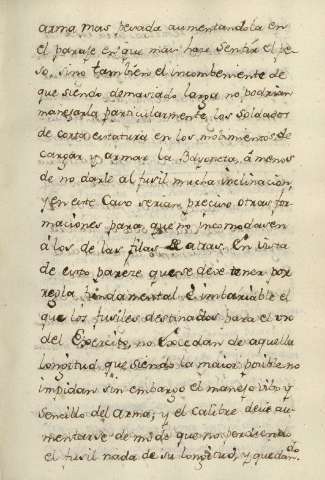 arma mas pesada aumentandola en
el paraje en que mas hace sentir el pe-
so, sino tambien el incombeniente de
que siendo demasiado larga no podrian
manejarla particularmente los Soldados
de corta estatura en los mobimientos de
cargar, y armar la Bayoneta, á menos
de no darle al fusil mucha inclinacion,
y en este Caso serian preciso otras for-
maciones para que no incomodasen
á los de las filas de atras. En vista
de esto parece que se deve tener por
regla fundamental é imbariable el
que los fusiles destinados para el uso
del Exercito, no Excedan de aquella
longitud que siendo la maior posible no
impidan sin embargo el manejo vibo y
sencillo del arma; y el Calibre deve au-
mentarse de modo que no perdiendo
el fusil nada de su longitud, y quedando